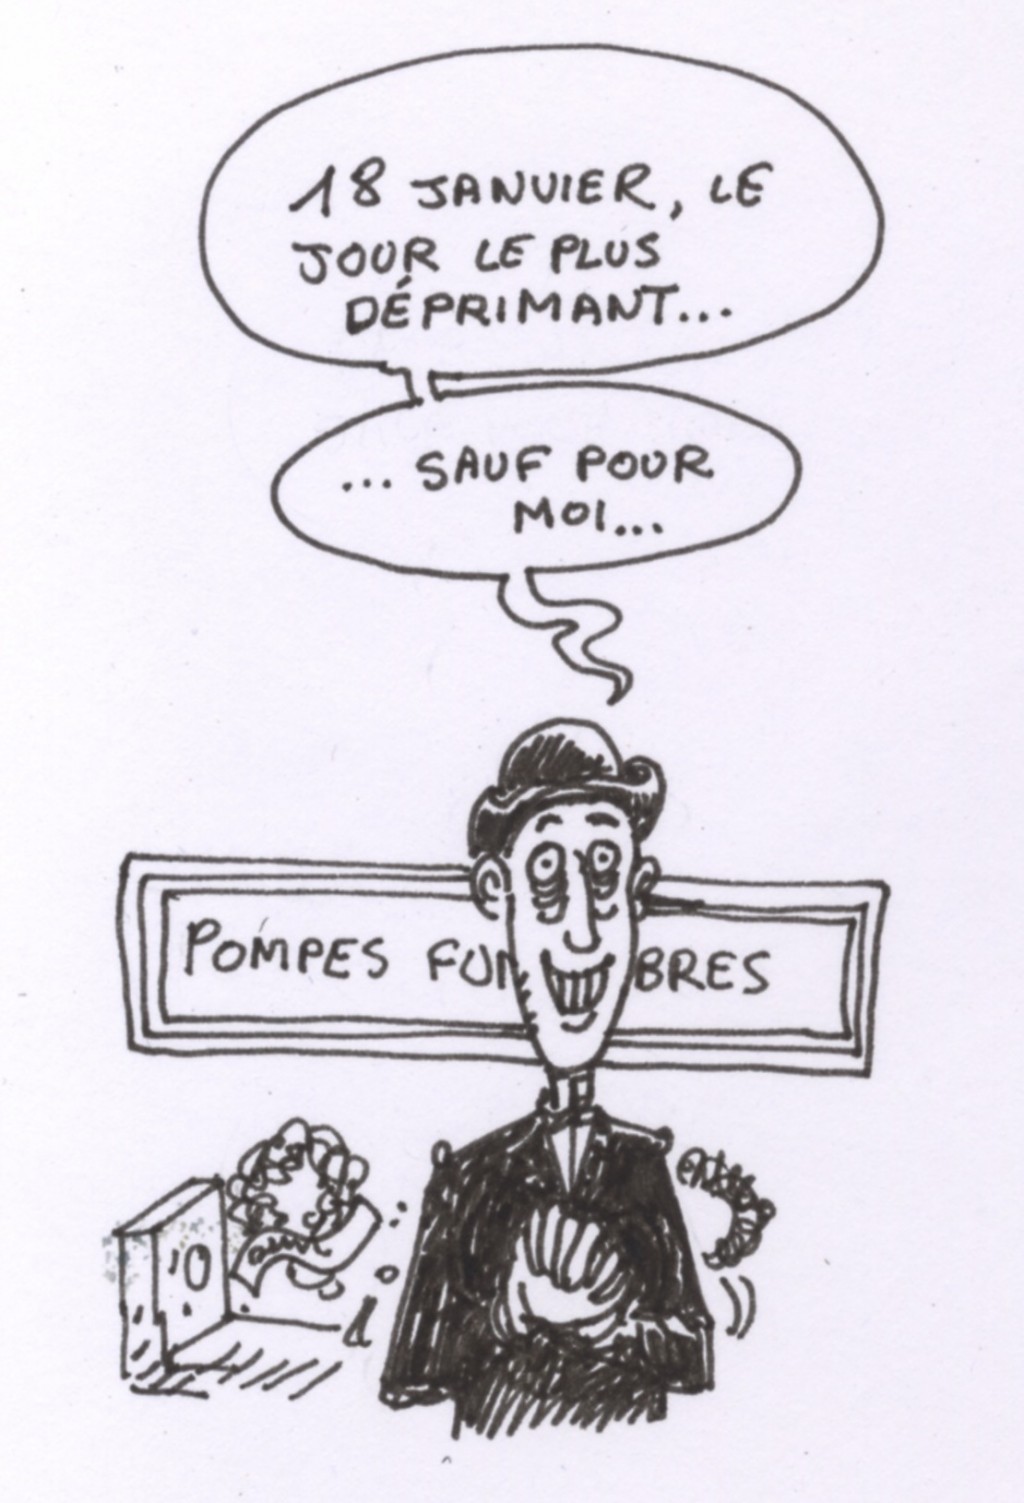 18 JANVIER, LE
JOUR LE PLUS
DÉPRIMANT...
... SAUF POUR
MOI...
POMPES FUN BRES